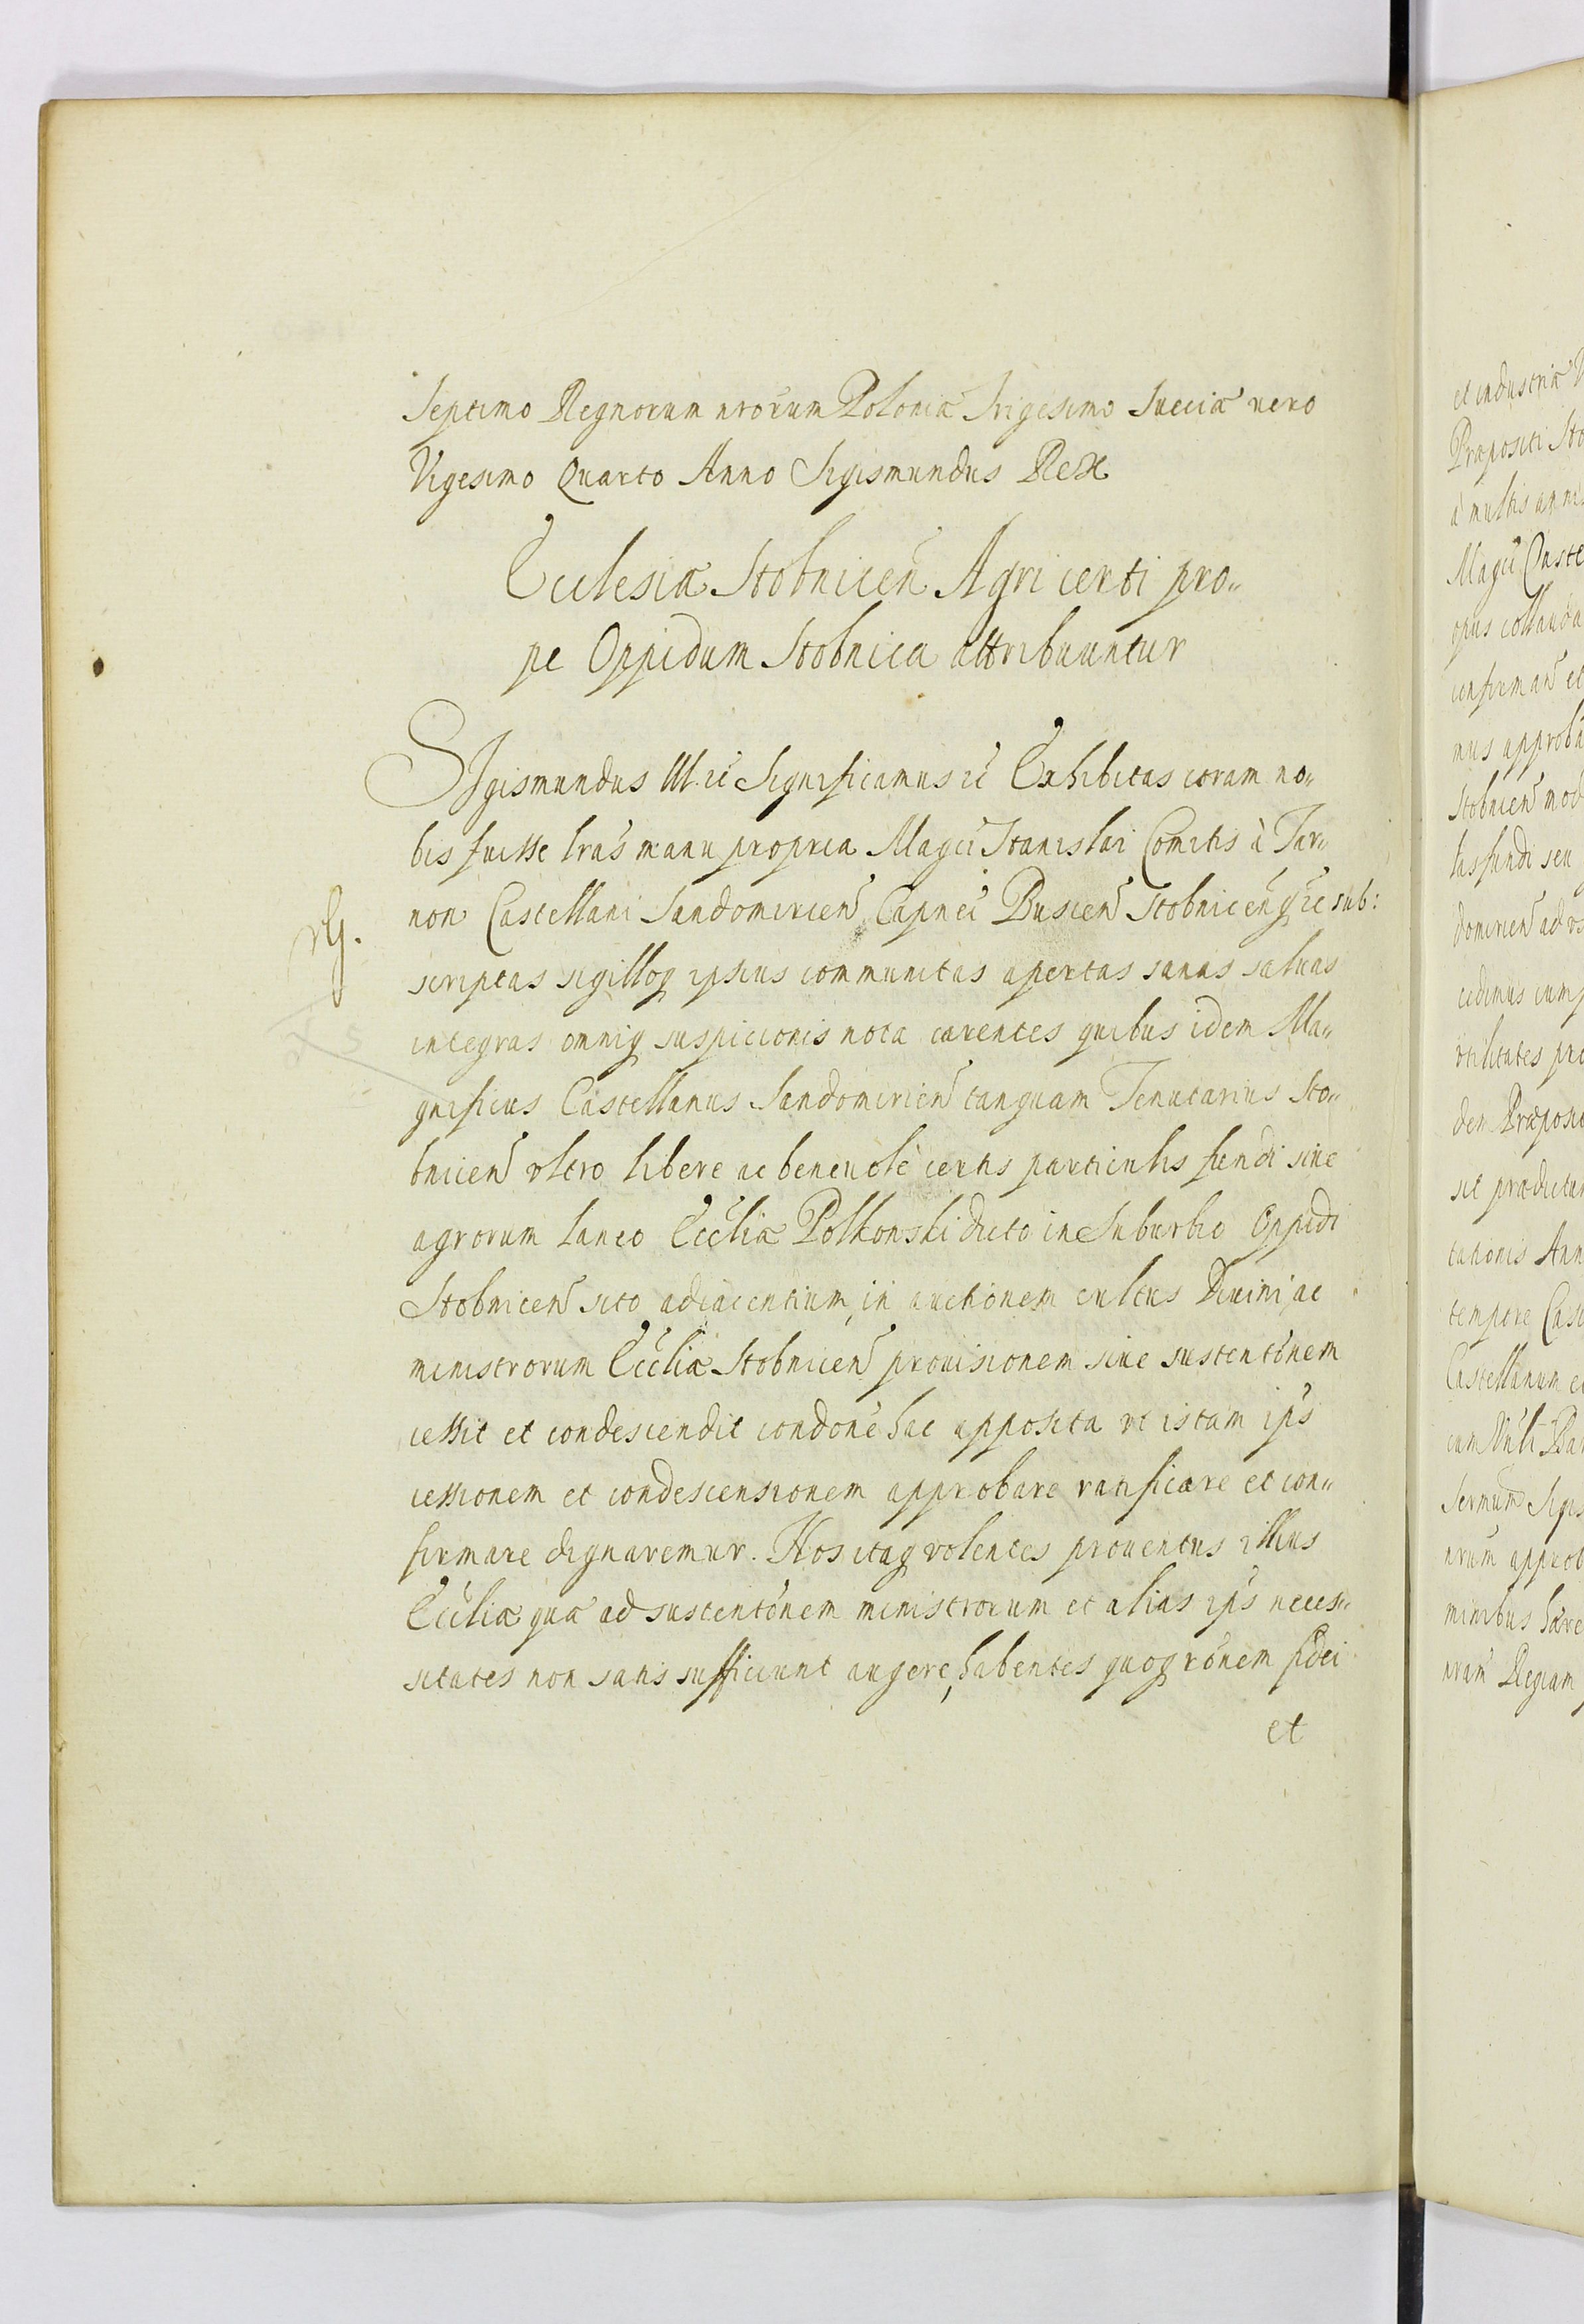 Septimo Regnorum nrorum Poloniæ Trigesimo Sueciæ vero
Vigesimo Quarto Anno Sigismundus Rex
Ecclesiæ Stobnicen Agri certi pro„
pe Oppidum Stobnica attribuuntur
SIgismundus III. ec Significamus ec Exhibitas coram no„
bis fuisse lras manu propria Magci Stanislai Comitis à Tar„
non Castellani Sandomirien Capnei Buscen Stobnicenq ec sub:
rG.
scriptas sigilloq ipsius communitas apertas sanas saluas
integras omniq suspicionis nota carentes quibus idem Ma„
gnificus Castellanus Sandomirien tanquam Tenutarius Sto„
bnicen vltro libere ac beneuolè certis particulis fundi siue
agrorum laneo Eccliæ Polkonski dicto in Suburbio Oppidi
Stobnicen sito adiacentium, in auctionem cultus Diuini, ac
ministrorum Ecclíæ Stobnicen prouisionem siue sustentonem
cessit et condescendit condone hac apposita vt istam ips
cessionem et condescensionem approbare ratificare et con„
firmare dignaremur. Nos itaq volentes prouentus illius
Ecclíæ quæ ad sustentonem ministrorum et alias ips neces„
sitates non satis sufficiunt augere, habentes quoq ronem fidei
et
et industriæ
Præpositi Sto
à multis anni
Magci Caste
opus collauda
confirman et
mus approba
Stobnicen mod
las fundi seu
domirien ad
cedimus cum
vtilitates pro
dem Præposi
sit prædictu
tationis Ann
tempore Cast
Castellanum e
cum
Sermum Sigis
nrum approb
minibus hære
nram Regiam